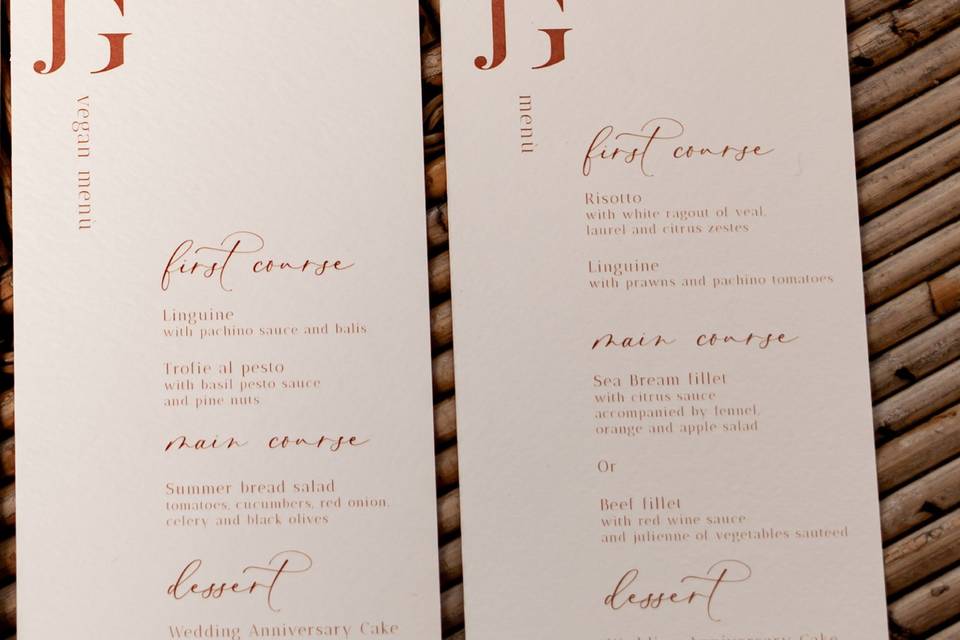 JG
vegan menù
first course
Linguine
with pachino sauce and balis
Trofie al pesto
with basil pesto sauce
and pine nuts
main course
Summer bread salad
tomatoes, cucumbers, red onion,
celery and black olives
dessert
Wedding Anniversary Cake
JG
menù
first course
Risotto
with white ragout of veal,
laurel and citrus zestes
Linguine
with prawns and pachino tomatoes
main course
Sea Bream fillet
with citrus sauce
accompanied by fennel,
orange and apple salad
Or
Beef fillet
with red wine sauce
and julienne of vegetables sauteed
dessert
Wedding Anniversary Cake